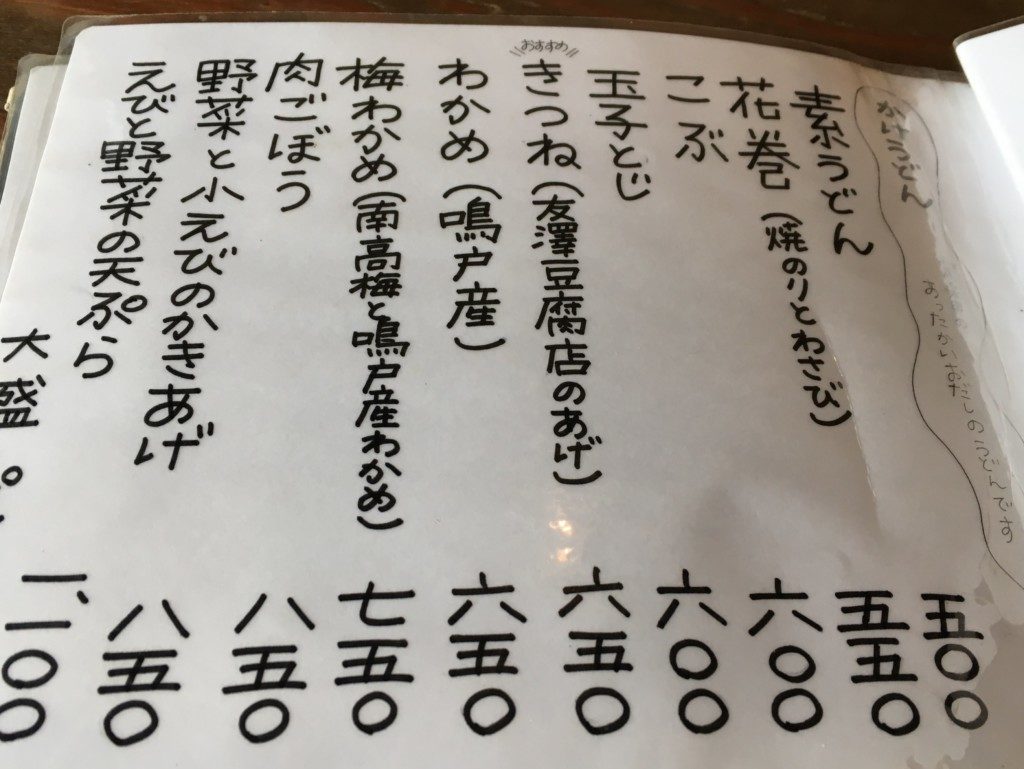 かけうどん
あったかいおだしのうどんです
素うどん 五〇〇
花巻(焼のりとわさび) 五五〇
こぶ 六〇〇
玉子とじ 六〇〇
おすすめ
きつね(友澤豆腐店のあげ) 六五〇
わかめ(鳴戸産) 六五〇
梅わかめ(南高梅と鳴戸産わかめ) 七五〇
肉ごぼう 八五〇
野菜と小えびのかきあげ 八五〇
えびと野菜の天ぷら 一、二〇〇
大盛